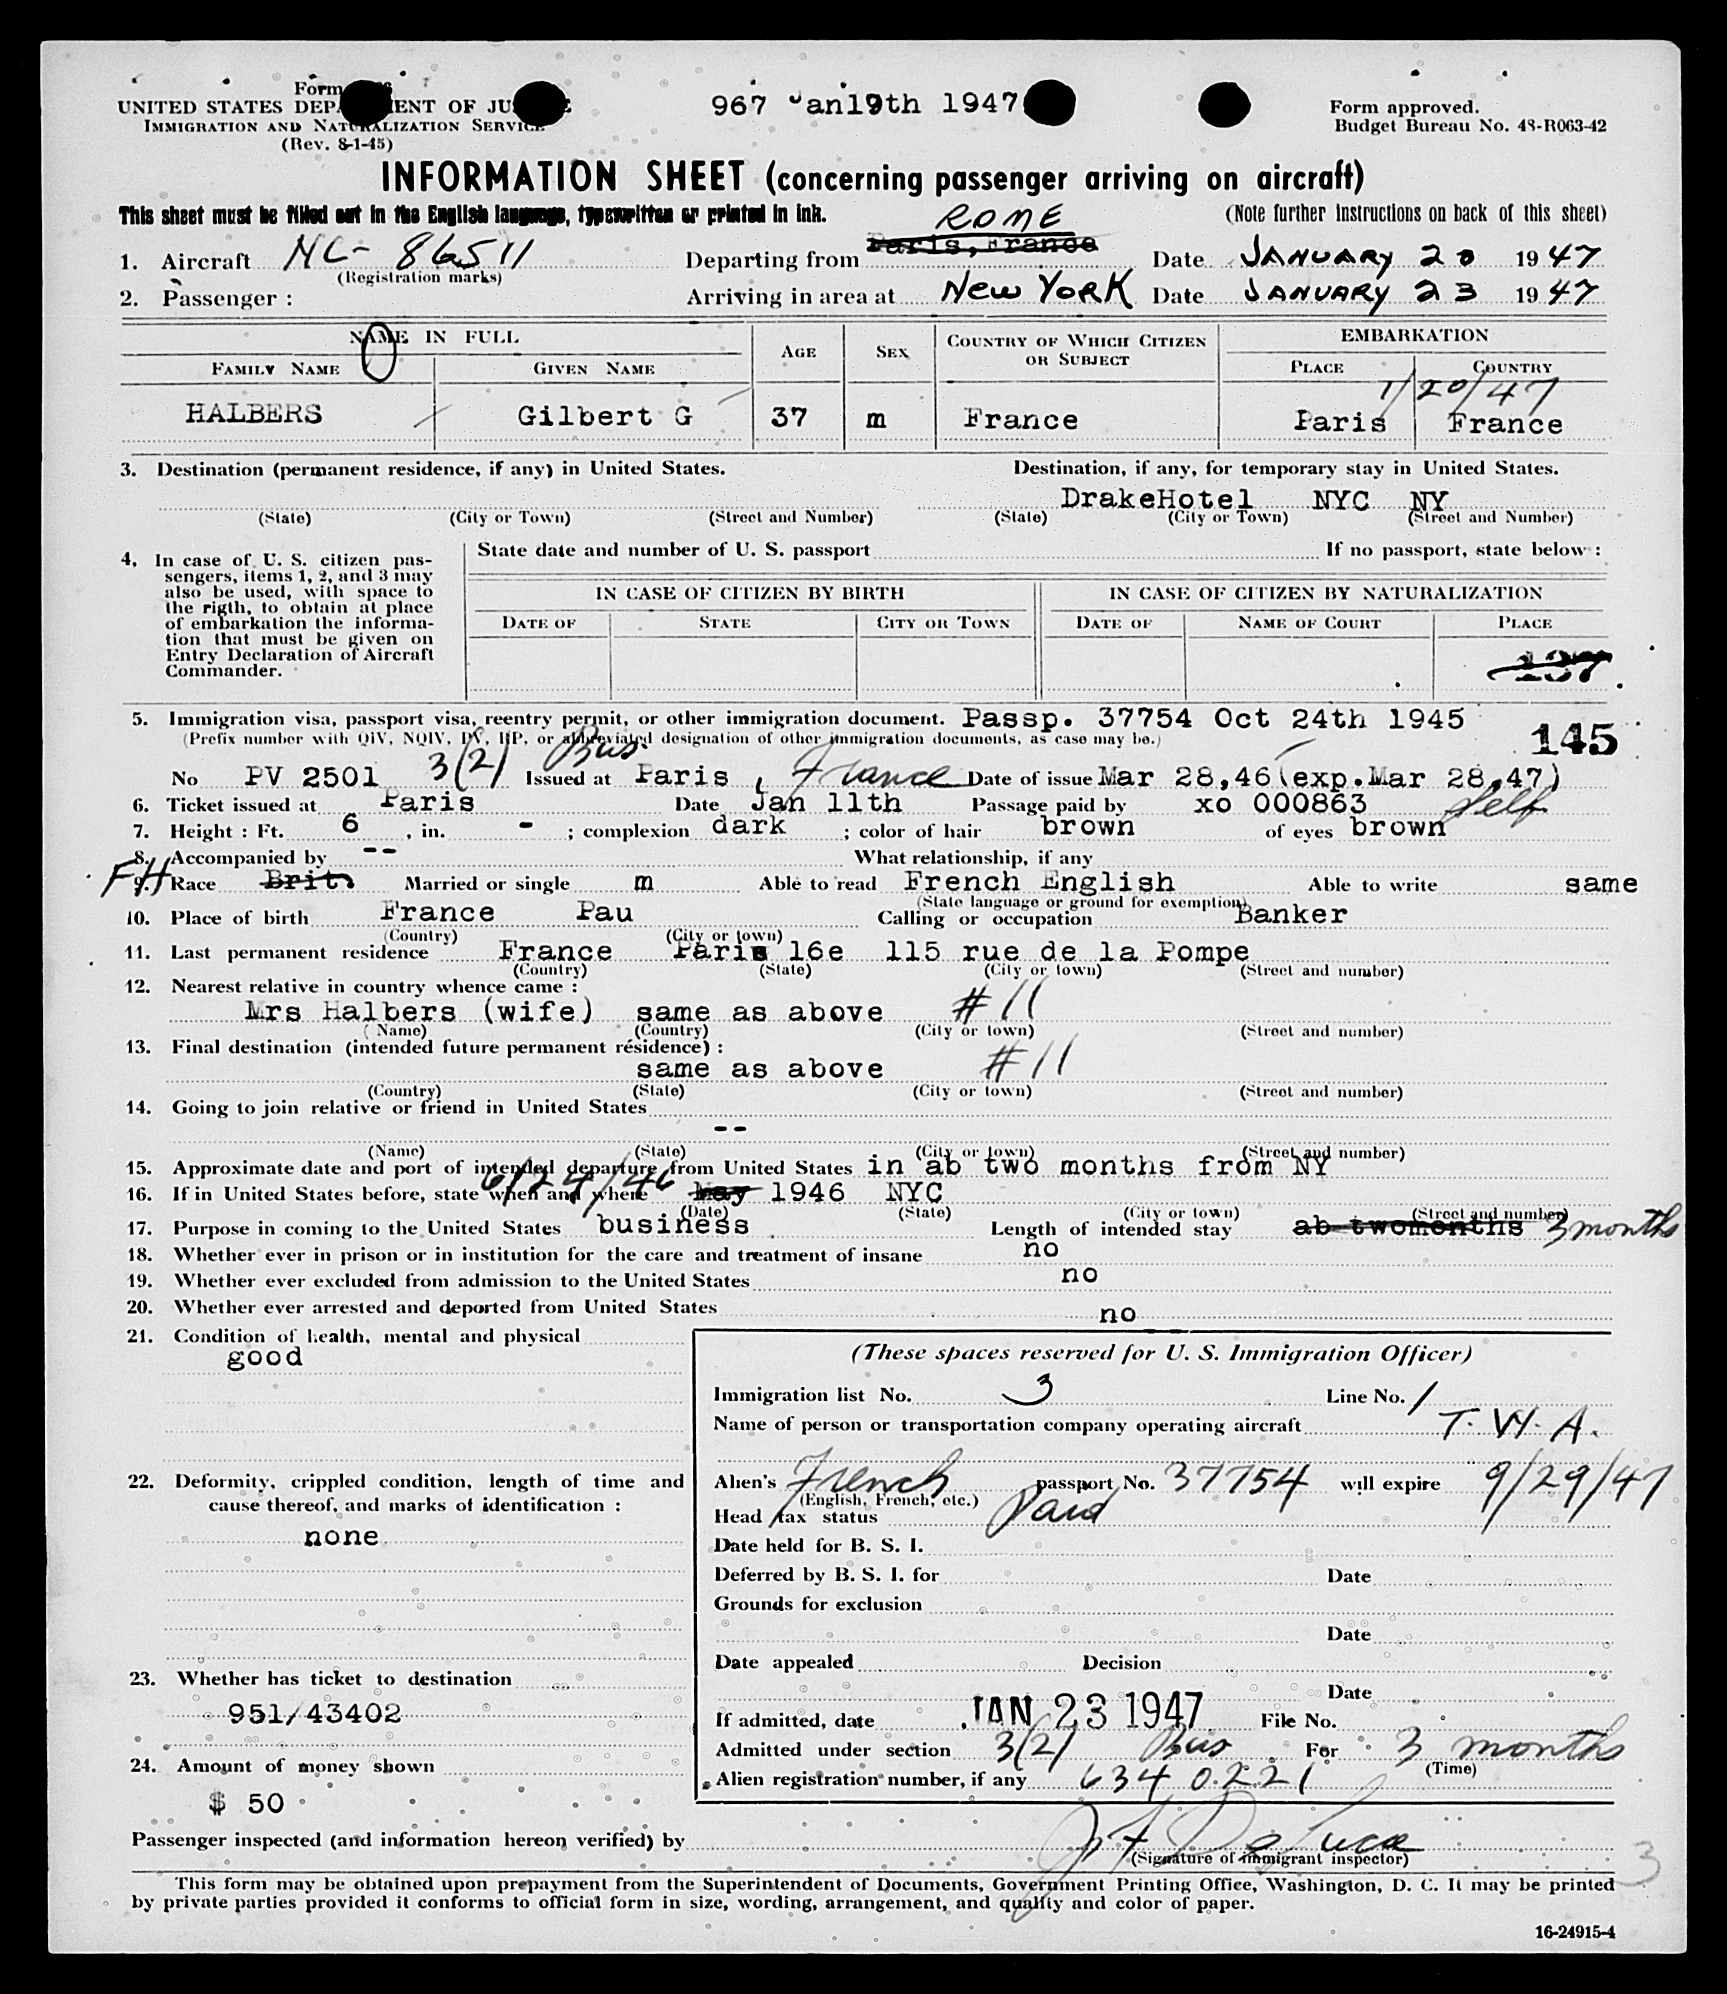 Form
UNITED STATES DEPARTMENT OF JUSTICE
IMMIGRATION AND NATURALIZATION SERVICE
(Rev. 8-1-45)
967 Jan19th 1947
Form approved.
Budget Bureau No. 43-R063-42
INFORMATION SHEET (concerning passenger arriving on aircraft)
This sheet must be filled out in the English language, typewritten or printed in ink.
(Note further instructions on back of this sheet)
ROME
1. Aircraft NC- 86511 Departing from Paris, France Date JANUARY 20 19 47
(Registration marks)
2. Passenger : Arriving in area at New YORK Date JANUARY 23 19 47
NAME IN FULL AGE SEX COUNTRY OF WHICH CITIZEN OR SUBJECT EMBARKATION
FAMILY NAME GIVEN NAME PLACE COUNTRY
1/20/47
HALBERS Gilbert G 37 m France Paris France
3. Destination (permanent residence, if any) in United States. Destination, if any, for temporary stay in United States.
DrakeHotel NYC NY
(State) (City or Town) (Street and Number) (State) (City or Town) (Street and Number)
4. In case of U. S. citizen pas-
sengers, items 1, 2, and 3 may
also be used, with space to
the rigth, to obtain at place
of embarkation the informa-
tion that must be given on
Entry Declaration of Aircraft
Commander.
State date and number of U. S. passport If no passport, state below :
IN CASE OF CITIZEN BY BIRTH IN CASE OF CITIZEN BY NATURALIZATION
DATE OF STATE CITY OR TOWN DATE OF NAME OF COURT PLACE
137
5. Immigration visa, passport visa, reentry permit, or other immigration document. Passp. 37754 Oct 24th 1945
(Prefix number with QIV, NQIV, PV, RP, or abbreviated designation of other immigration documents, as case may be.)
145
No PV 2501 3(2) Bus. Issued at Paris, France Date of issue Mar 28,46 (exp.Mar 28,47)
6. Ticket issued at Paris Date Jan 11th Passage paid by xo 000863 Self
7. Height : Ft. 6 , in. - ; complexion dark ; color of hair brown of eyes brown
8. Accompanied by -- What relationship, if any
FH
9. Race Brit. Married or single m Able to read French English Able to write same
(State language or ground for exemption)
10. Place of birth France Pau Calling or occupation Banker
(Country) (City or town)
11. Last permanent residence France Paris 16e 115 rue de la Pompe
(Country) (State) (City or town) (Street and number)
12. Nearest relative in country whence came :
Mrs Halbers (wife) same as above #11
(Name) (Country) (City or town) (Street and number)
13. Final destination (intended future permanent résidence) :
same as above #11
(Country) (State) (City or town) (Street and number)
14. Going to join relative or friend in United States
--
(Name) (State) (City or town) (Street and number)
15. Approximate date and port of intended departure from United States in ab two months from NY
6/24/46
16. If in United States before, state when and where May 1946 NYC
(Date) (State) (City or town) (Street and number)
17. Purpose in coming to the United States business Length of intended stay ab twomonths 3 months
18. Whether ever in prison or in institution for the care and treatment of insane no
19. Whether ever excluded from admission to the United States no
20. Whether ever arrested and deported from United States no
21. Condition of health, mental and physical
good
22. Deformity, crippled condition, length of time and
cause thereof, and marks of identification :
none
23. Whether has ticket to destination
951/43402
24. Amount of money shown
$ 50
(These spaces reserved for U. S. Immigration Officer)
Immigration list No. 3 Line No. 1
Name of person or transportation company operating aircraft T. W. A.
Alien's French passport No. 37754 will expire 9/29/47
(English, French, etc.)
Head tax status Paid
Date held for B. S. I.
Deferred by B. S. I. for Date
Grounds for exclusion
Date
Date appealed Decision
Date
If admitted, date JAN 23 1947 File No.
Admitted under section 3(2) Bus For 3 months
(Time)
Alien registration number, if any 634 0221
Passenger inspected (and information hereon verified) by J F DeLuca
(Signature of immigrant inspector)
3
This form may be obtained upon prepayment from the Superintendent of Documents, Government Printing Office, Washington, D. C. It may be printed
by private parties provided it conforms to official form in size, wording, arrangement, and quality and color of paper.
16-24915-4